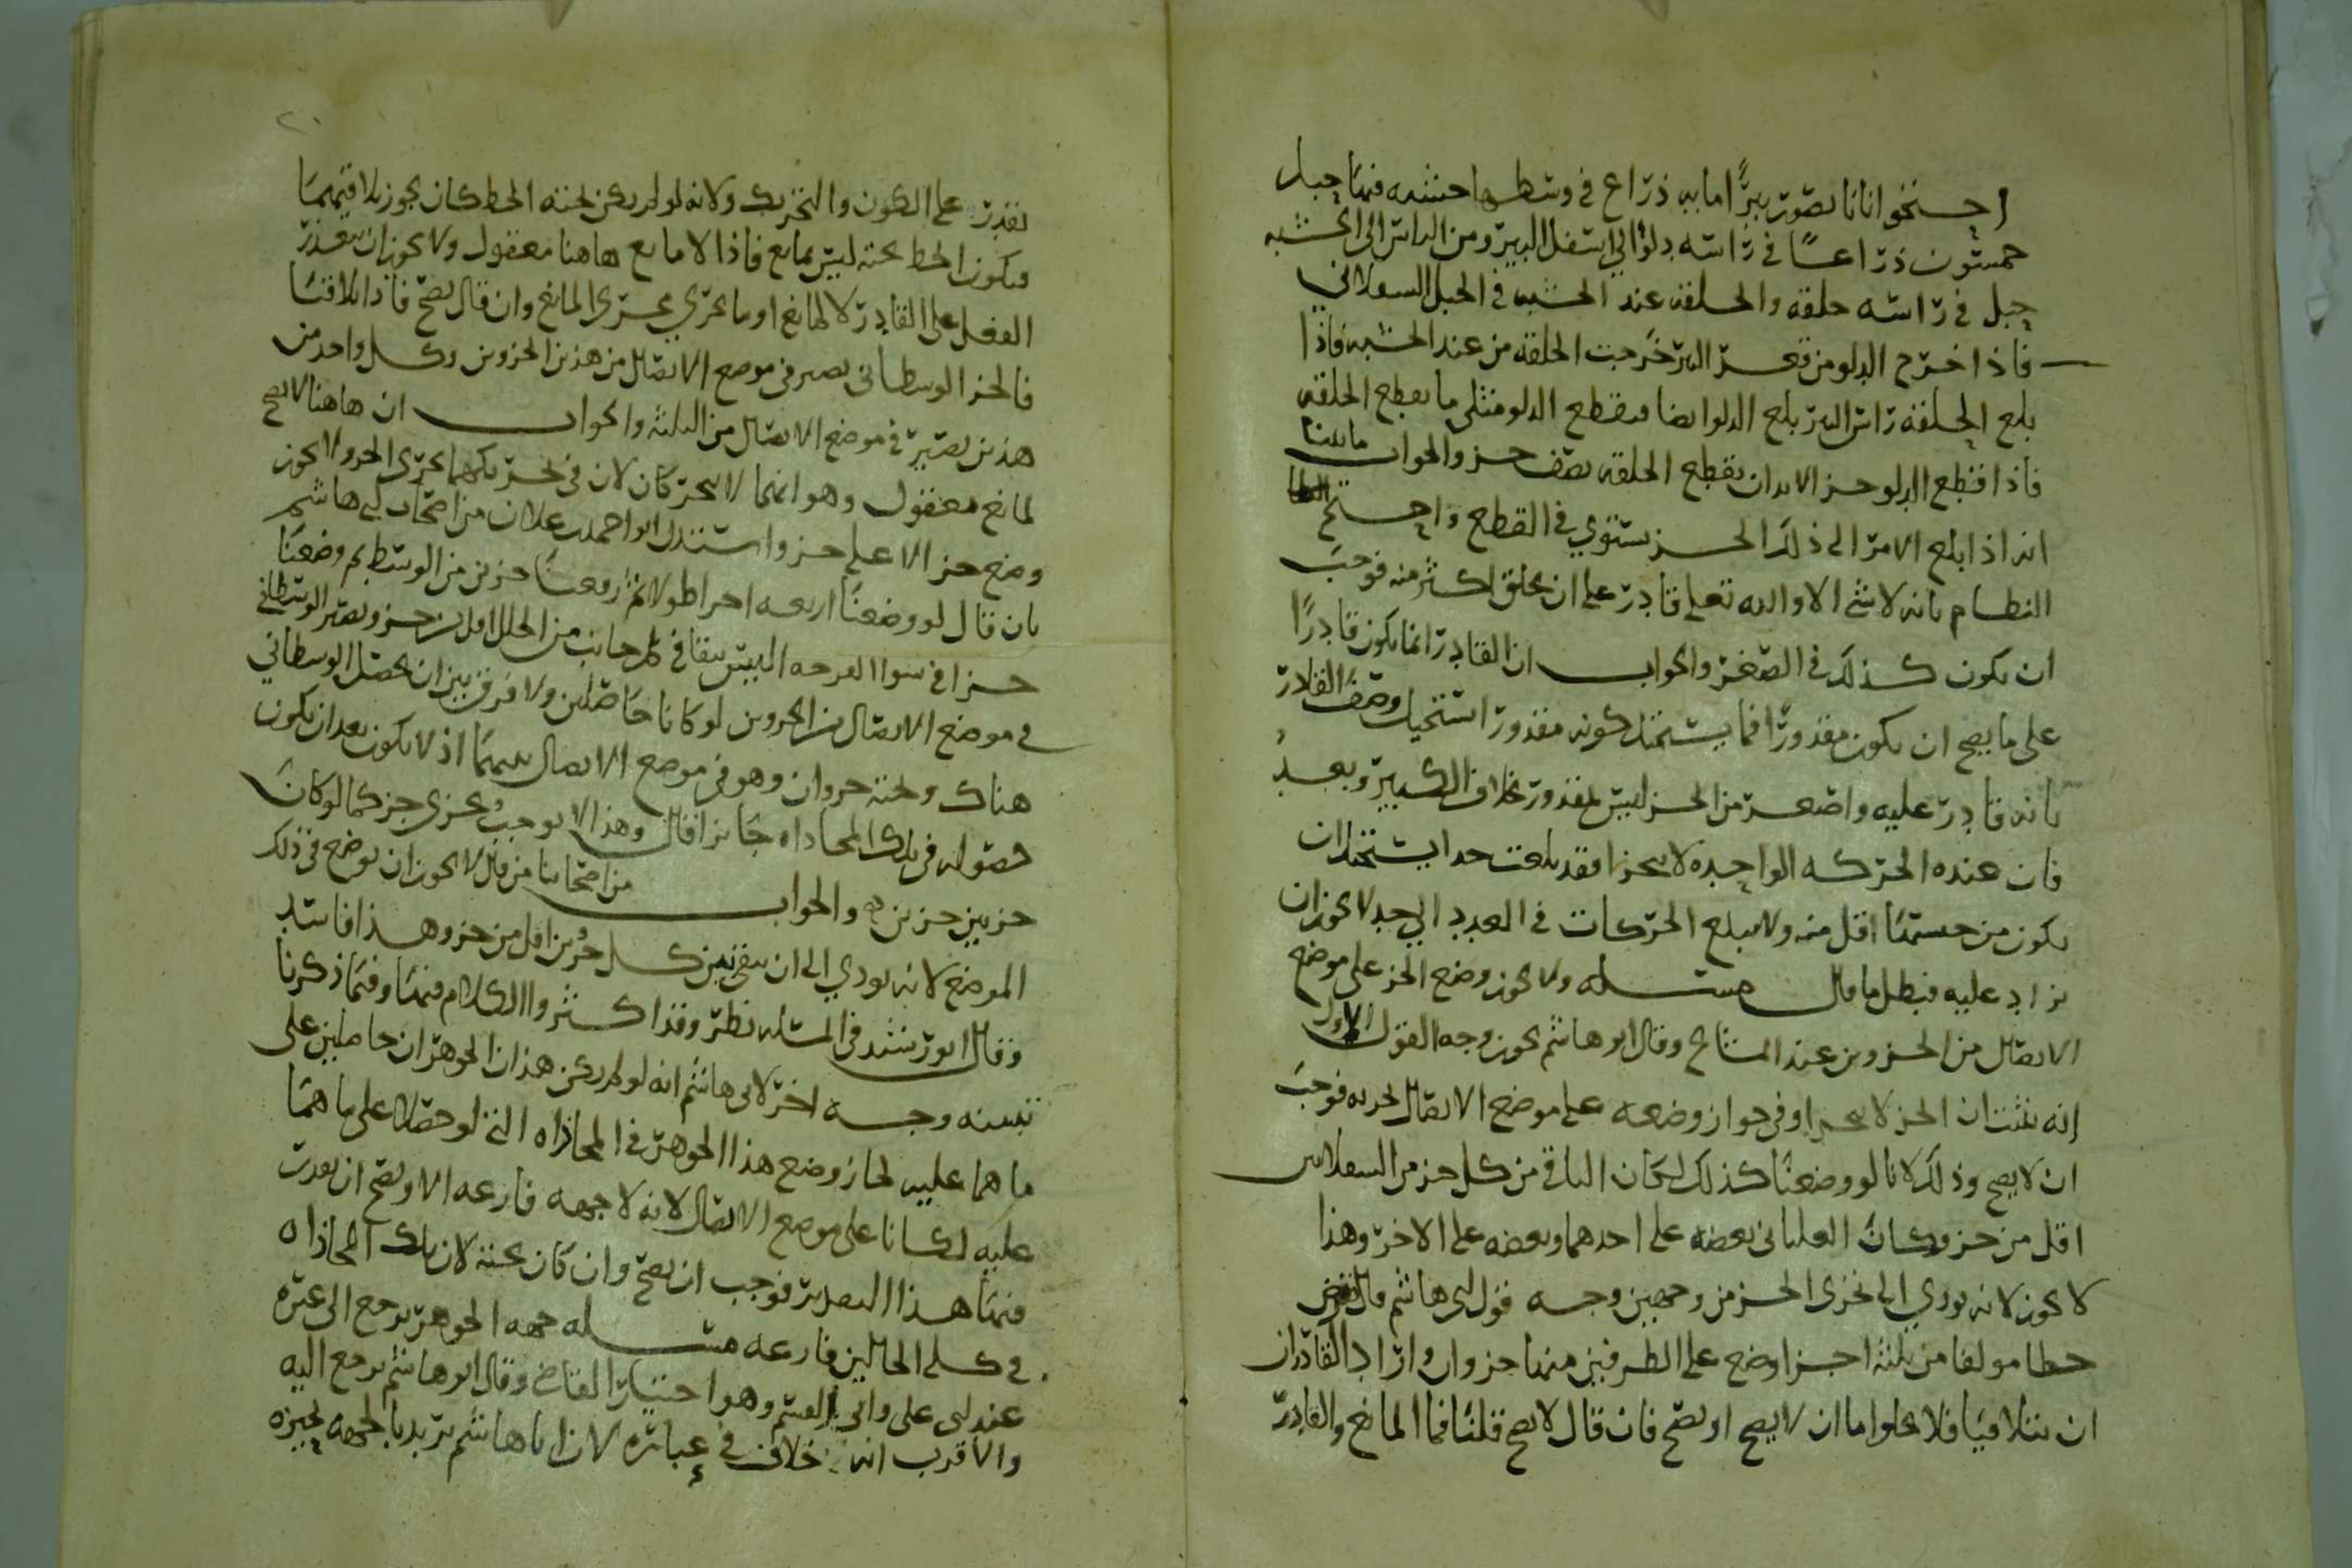 احتجوا بانا نصور بيرًا مايه ذراع في وسطها خشبه فيها حبل
خمسون ذراعًا في راسه دلو الى اسفل البير ومن الراس الى الخشبه
حبل في راسه حلقه والحلقه عند الخشبه في الحبل السفلاني
فاذا اخرج الدلو من قعر البير خرجت الحلقه من عند الخشبه فاذا
بلغ الحلقه راس البير بلغ الدلو ايضا فيقطع الدلو مثلي ما يقطع الحلقه
فاذا قطع الدلو جز الابدان يقطع الحلقه نصف جز والجواب ما بينا
انه اذا بلغ الامر الى ذلك الجز يستوي في القطع واحتج
النظام بانه لا شي الا والله تعلى قادر على ان يخلق اكثر منه فوجب
ان يكون كذلك في الصغر والجواب ان القادر انما يكون قادرًا
على ما يصح ان يكون مقدورًا فما يستحيل كونه مقدورا استحيل وصف القادر
بانه قادر عليه واصغر من الجز ليس بمقدور بخلاف الكبير وبعد
فان عنده الحركه الواحده لا يتجزا فقد بلغت حدا يستحيل ان
يكون من جسمنا اقل منه ولا يبلغ الحركات في العدد الى حد لا يجوز ان
يزاد عليه فبطل ما قال مسله ولا يجوز وضع الجز على موضع
الاتصال من الجزوين عند المشايخ وقال ابو هاشم يجوز وجه القول الاول
انه يثبت ان الجز لا يتجزا وفي جواز وضعه على موضع الاتصال تجزيه فوجب
ان لا يصح وذلك لانا لو وضعنا كذلك لكان الباقي من كل جز من السفلاين
اقل من جز وكان العلياني بعضه على احدهما وبعضه على الاخر وهذا
لا يجوز لانه يودي الى تجزي الجز من وجهين وجه قول ابي هاشم قال نفرض
خطا مولفا من ثلثه اجزا وضع على الطرفين منها جزوان واراد القادران
ان يتلاقيا فلا يخلوا ما ان لا يصح او يصح فان قال لا يصح قلنا فما المانع والقادر
يقدر على الكون والتحريك ولانه لو لم يكن تحته الخط كان يجوز تلاقيهما
وتكون الخط تحته ليس بمانع فاذا لا مانع هاهنا معقول ولا يجوز ان يتعذر
الفعل على القادر لا لمانع او ما يجري مجرى المانع وان قال يصح فاذا تلاقيا
فالجز الوسطاني يصير في موضع الاتصال من هذين الجزوين وكل واحد من
هذين يصير في موضع الاتصال من الثلثه والجواب ان هاهنا لا يصح
لمانع معقول وهو انهما لا يتحركان لان في تحركهما تجزى الجز ولا يجوز
وضع جز الا على جز واستدل ابو احمد بن علان من اصحاب ابي هاشم
بان قال لو وضعنا اربعه اجزا طولا ثم رفعنا جزين من الوسط ثم وضعنا
جزا في سوا الفرجه اليس يبقا في كل جانب من الخلل اقل من جز ويصير الوسطاني
في موضع الاتصال من الجزوين لو كانا حاصلين ولا فرق بين ان يحصل الوسطاني
هناك وتحته جزوان وهو في موضع الاتصال بينهما اذ لا يكون بعد ان يكون
حصوله في تلك المحاذاه جايزا قال وهذا لا يوجب تجزي جز كما لو كان
جز بين جزين والجواب من اصحابنا من قال لا يجوز ان يوضع في ذلك
الموضع لانه يودي الى ان يبقى بين كل جزين اقل من جز وهذا فاسد
وقال ابو رشيد في المسله نظر وقد اكثروا الكلام فيها وفيما ذكرنا
تنبيه وجه اخر لابي هاشم انه لو لم يكن هذان الجوهران حاصلين على
ما هما عليه لجاز وضع هذا الجوهر في المحاذاه التي لو حصلا على ما هما
عليه لكانا على موضع الاتصال لانه لا جهه فارغه الا ويصح ان يقدر
فيها هذا التقدير فوجب ان يصح وان كان تحته لان تلك المحاذاه
في كلى الحالين فارغه مسله جهه الجوهر يرجع الى غيره
عند ابي علي وابي القسم وهو اختيار القاضي وقال ابو هاشم يرجع اليه
والاقرب انه خلاف في عباره لان ابا هاشم يريد بالجهه تحيزه